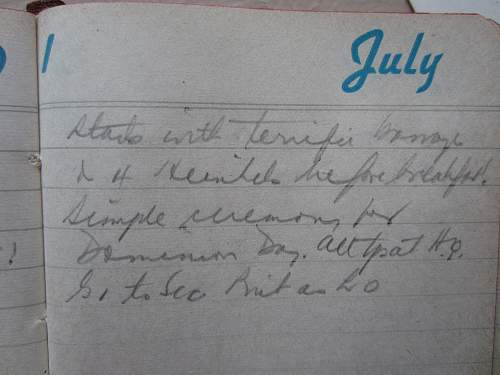 1 July
Starts with terrific barrage
& 4 Heinkels before breakfast.
Simple ceremony for
Dominion Day. All Tps at H.Q.
to See as